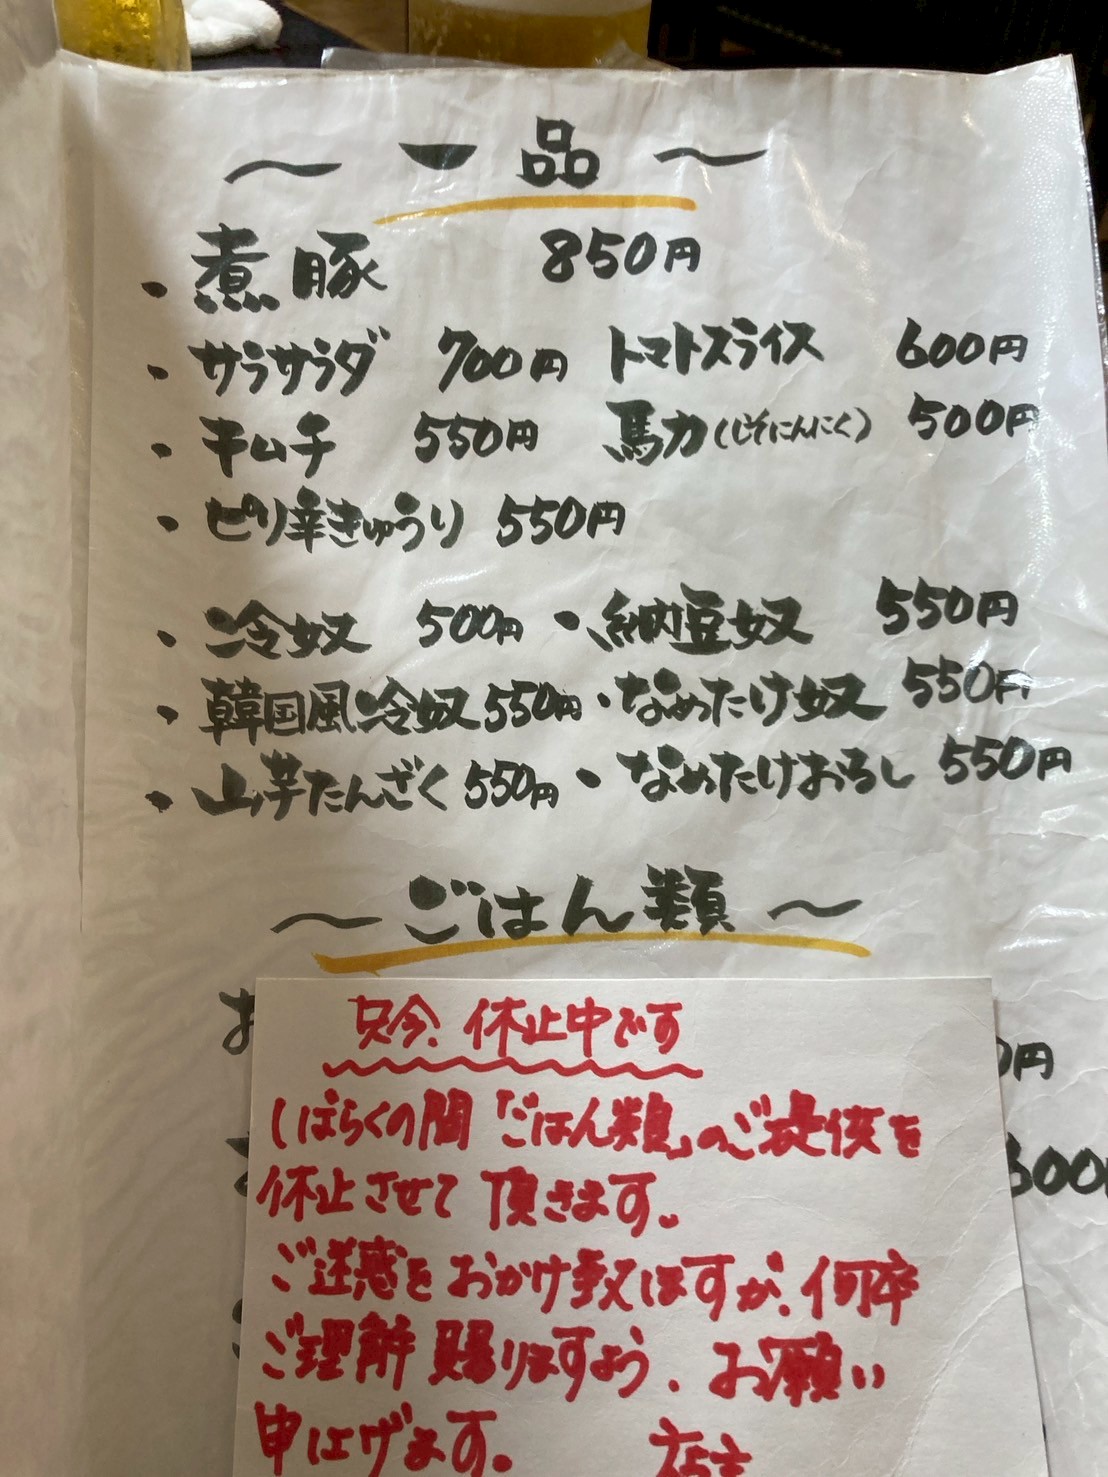 〜 一品 〜
・煮豚 850円
・サラサラダ 700円 トマトスライス 600円
・キムチ 550円 馬力(しそにんにく) 500円
・ピリ辛きゅうり 550円
・冷奴 500円 ・納豆奴 550円
・韓国風冷奴 550円 ・なめたけ奴 550円
・山芋たんざく 550円 ・なめたけおろし 550円
〜 ごはん類 〜
只今、休止中です
しばらくの間「ごはん類」のご提供を
休止させて頂きます。
ご迷惑をおかけ致しますが、何卒
ご理解賜りますよう、お願い
申し上げます。 店主
お 0円
600円